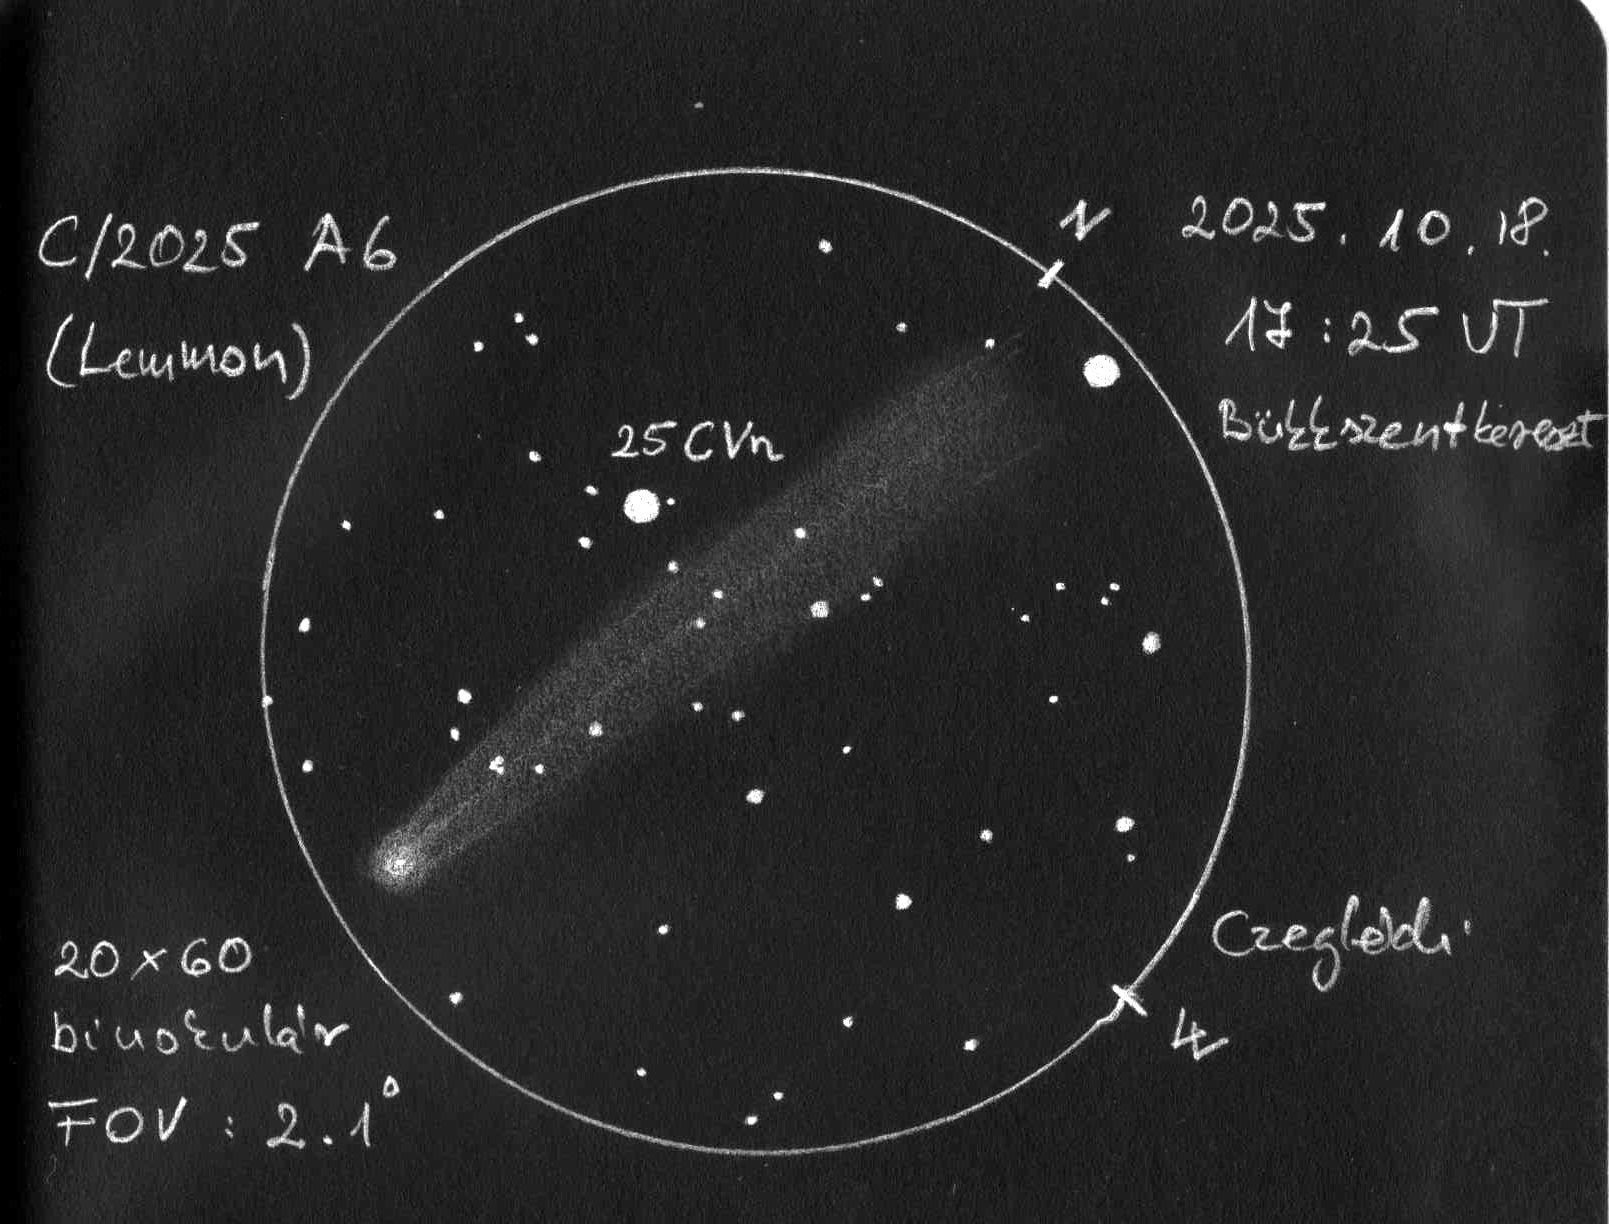 C/2025 A6
(Lemmon)
N
2025. 10. 18.
17:25 UT
Bükkszentkereszt
25 CVn
20x60
binokulár
FOV: 2.1°
Czeglédi
W